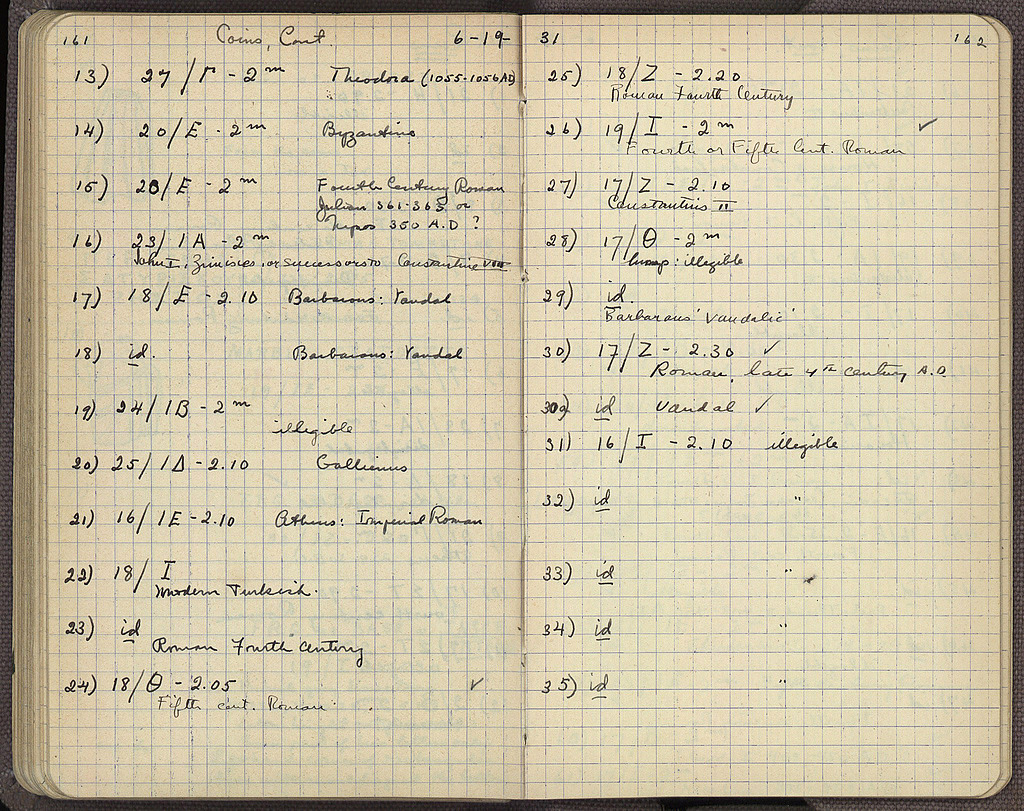 161 Coins, Cont. 6-19-
13) 27/Γ - 2m Theodora (1055-1056 AD)
14) 20/E - 2m Byzantine
15) 20/E - 2m Fourth Century Roman
Julian 361-363 or
Nepos 350 A.D ?
16) 23/IA - 2m
John I, Zimisies, or successors to Constantine VIII
17) 18/E - 2.10 Barbarous: Vandal
18) id. Barbarous: Vandal
19) 24/IB - 2m
illegible
20) 25/IΔ - 2.10 Gallienus
21) 16/IE - 2.10 Athens: Imperial Roman
22) 18/I
Modern Turkish.
23) id
Roman Fourth Century
24) 18/Θ - 2.05 ✓
Fifth cent. Roman
31 162
25) 18/Z - 2.20
Roman Fourth Century
26) 19/I - 2m ✓
Fourth or Fifth Cent. Roman
27) 17/Z - 2.10
Constantius II
28) 17/Θ - 2m
: illegible
29) id.
Barbarous 'Vandalic'
30) 17/Z - 2.30 ✓
Roman, late 4th century A.D.
30a) id Vandal ✓
31) 16/I - 2.10 illegible
32) id "
33) id "
34) id "
35) id "